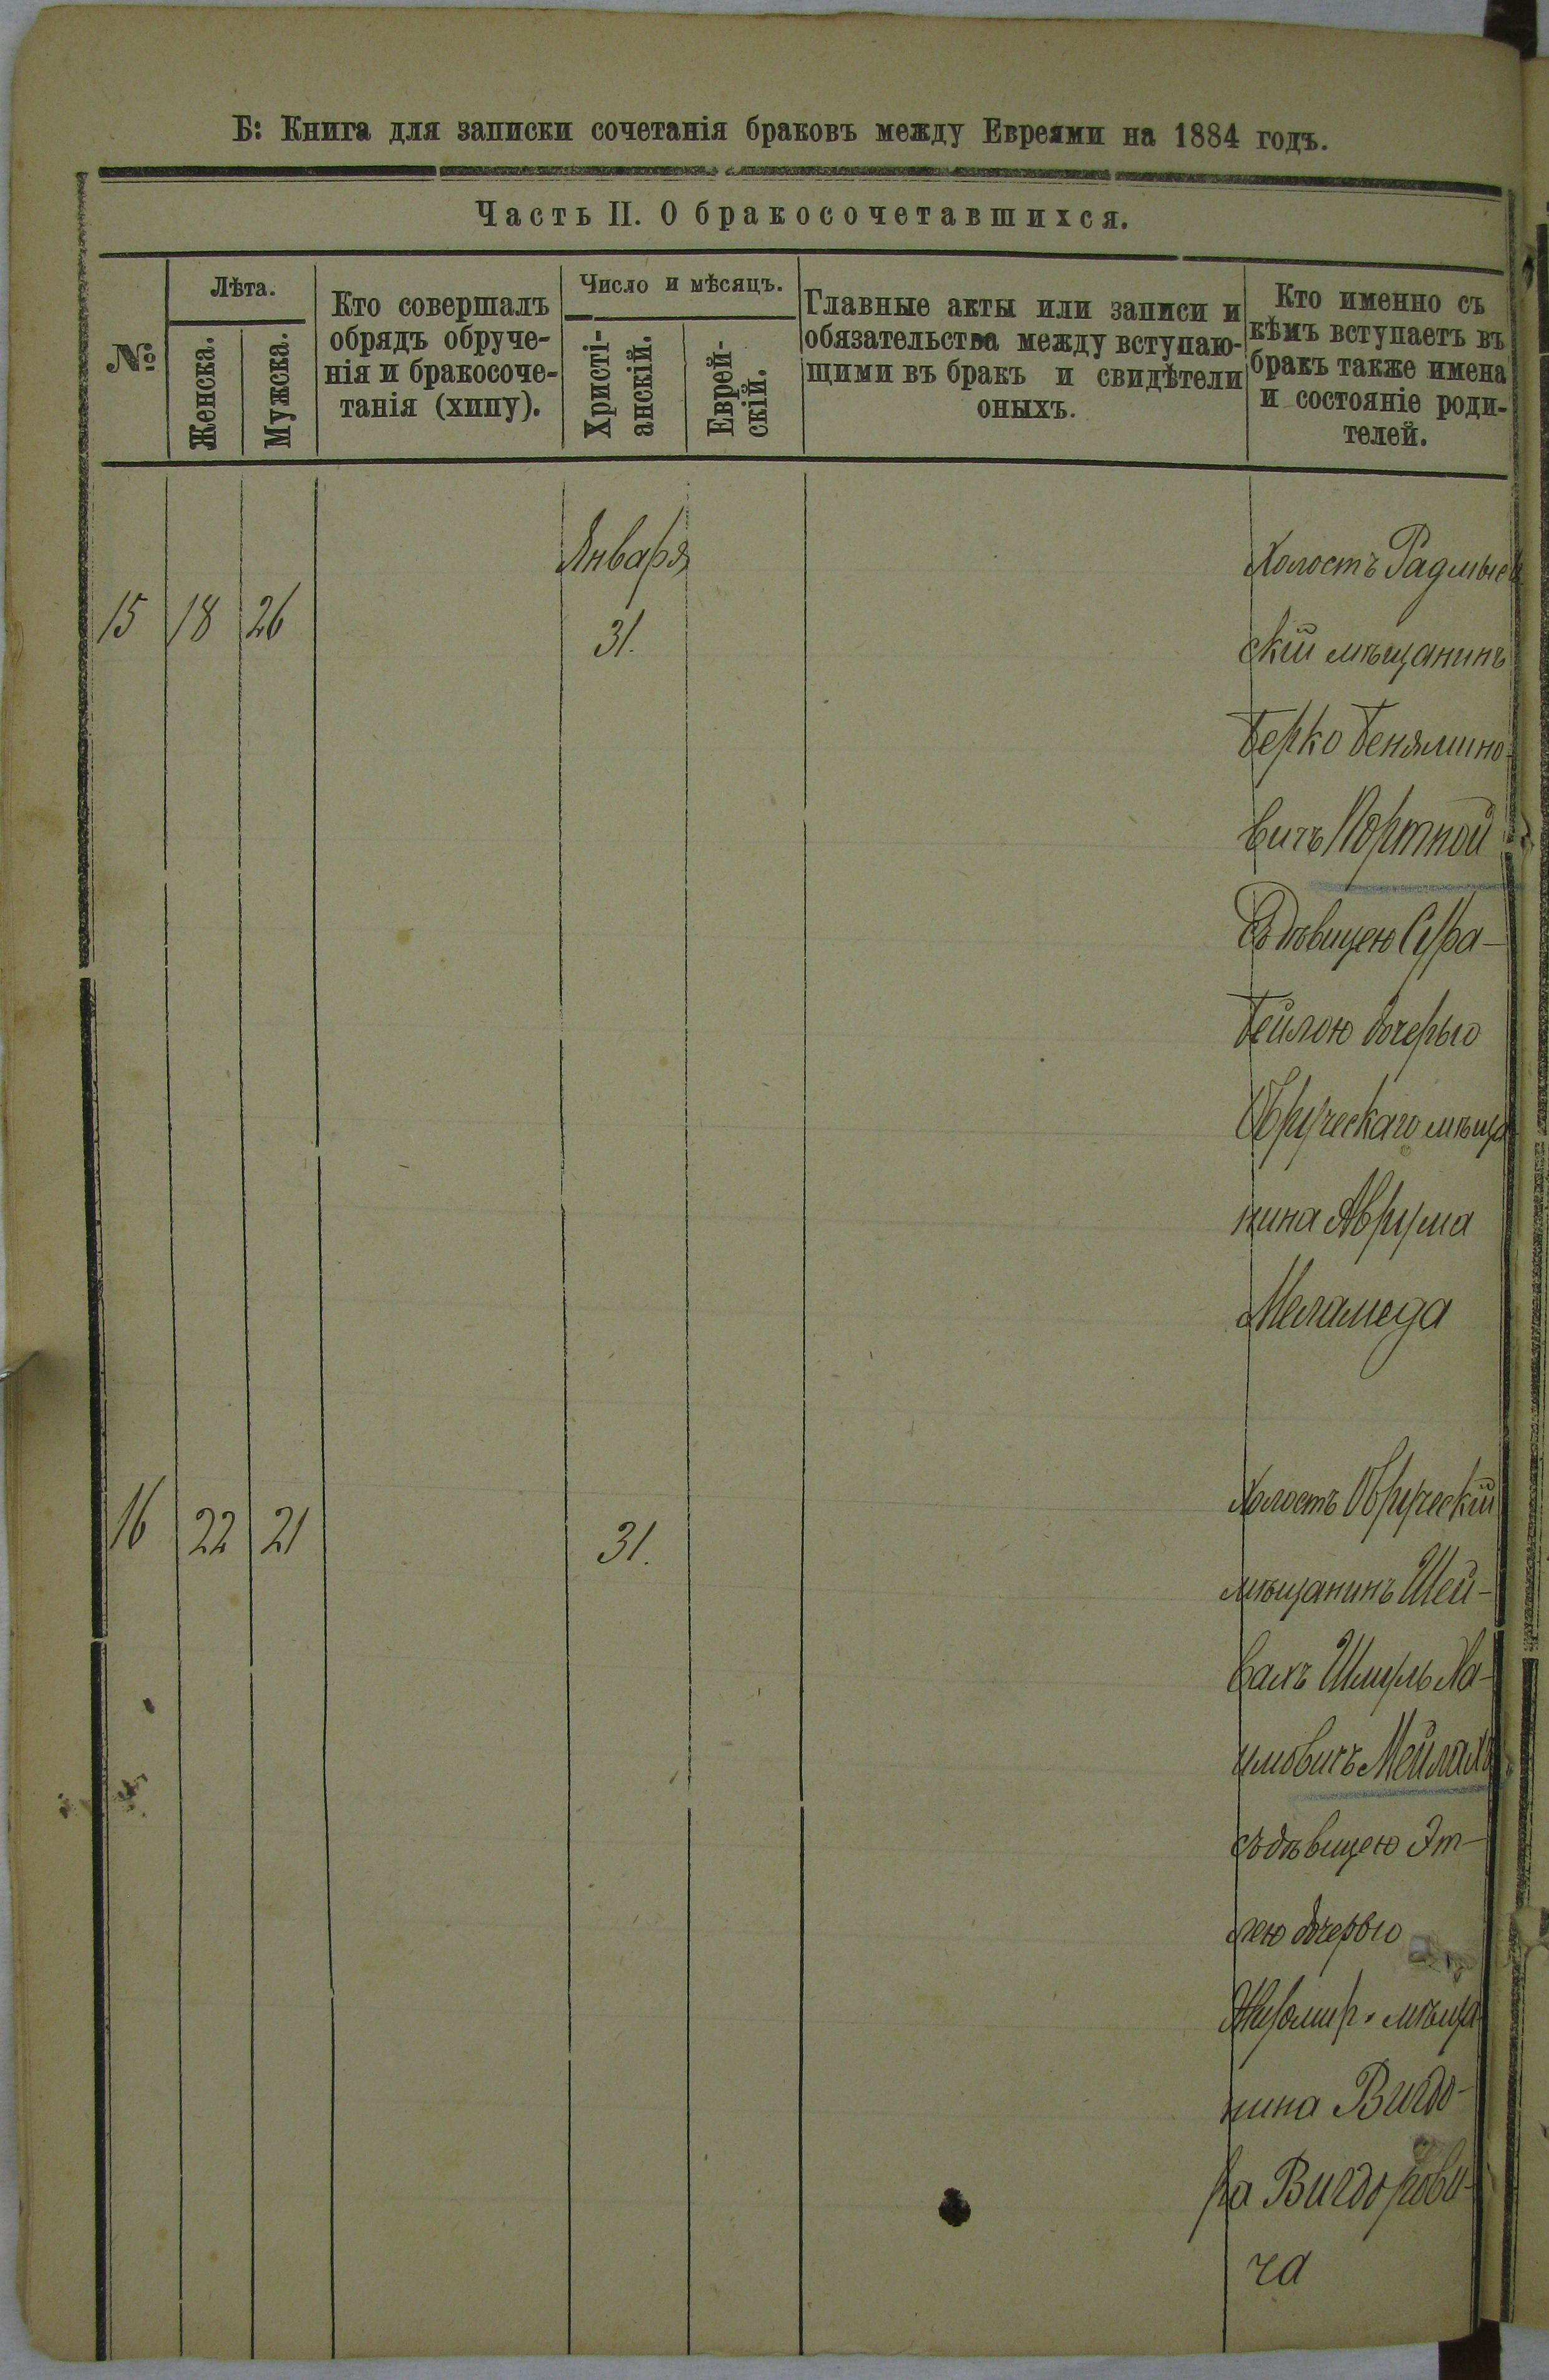 Б: Книга для записки сочетанія браковъ между Евреями на 1884 годъ.
Часть II. О бракосочетавшихся.
№
Лѣта.
Женска.
Мужска.
Кто совершалъ
обрядъ обруче-
нія и бракосоче-
танія (хипу).
Число и мѣсяцъ.
Христі-
анскій.
Еврей-
скій.
Главные акты или записи и
обязательства между вступаю-
щими въ бракъ и свидѣтели
оныхъ.
Кто именно съ
кѣмъ вступаетъ въ
бракъ также имена
и состояніе роди-
телей.
Января
15 18 26 31.
Холостъ Радмысл
скій мѣщанинъ
Берко Бенямино-
вичъ Портной
Съ дѣвицею Сура-
Бейлою дочерью
Овручскаго мѣща
нина Аврума
Меламеда
16 22 21 31.
Холостъ Овручскій
мѣщанинъ Шей-
вахъ Шмуль Ха-
имовичъ Мейлахъ
съ дѣвицею Эт-
лею дочерью
Житомир. мѣща
нина Вигдо-
ра Вигдорови-
ча